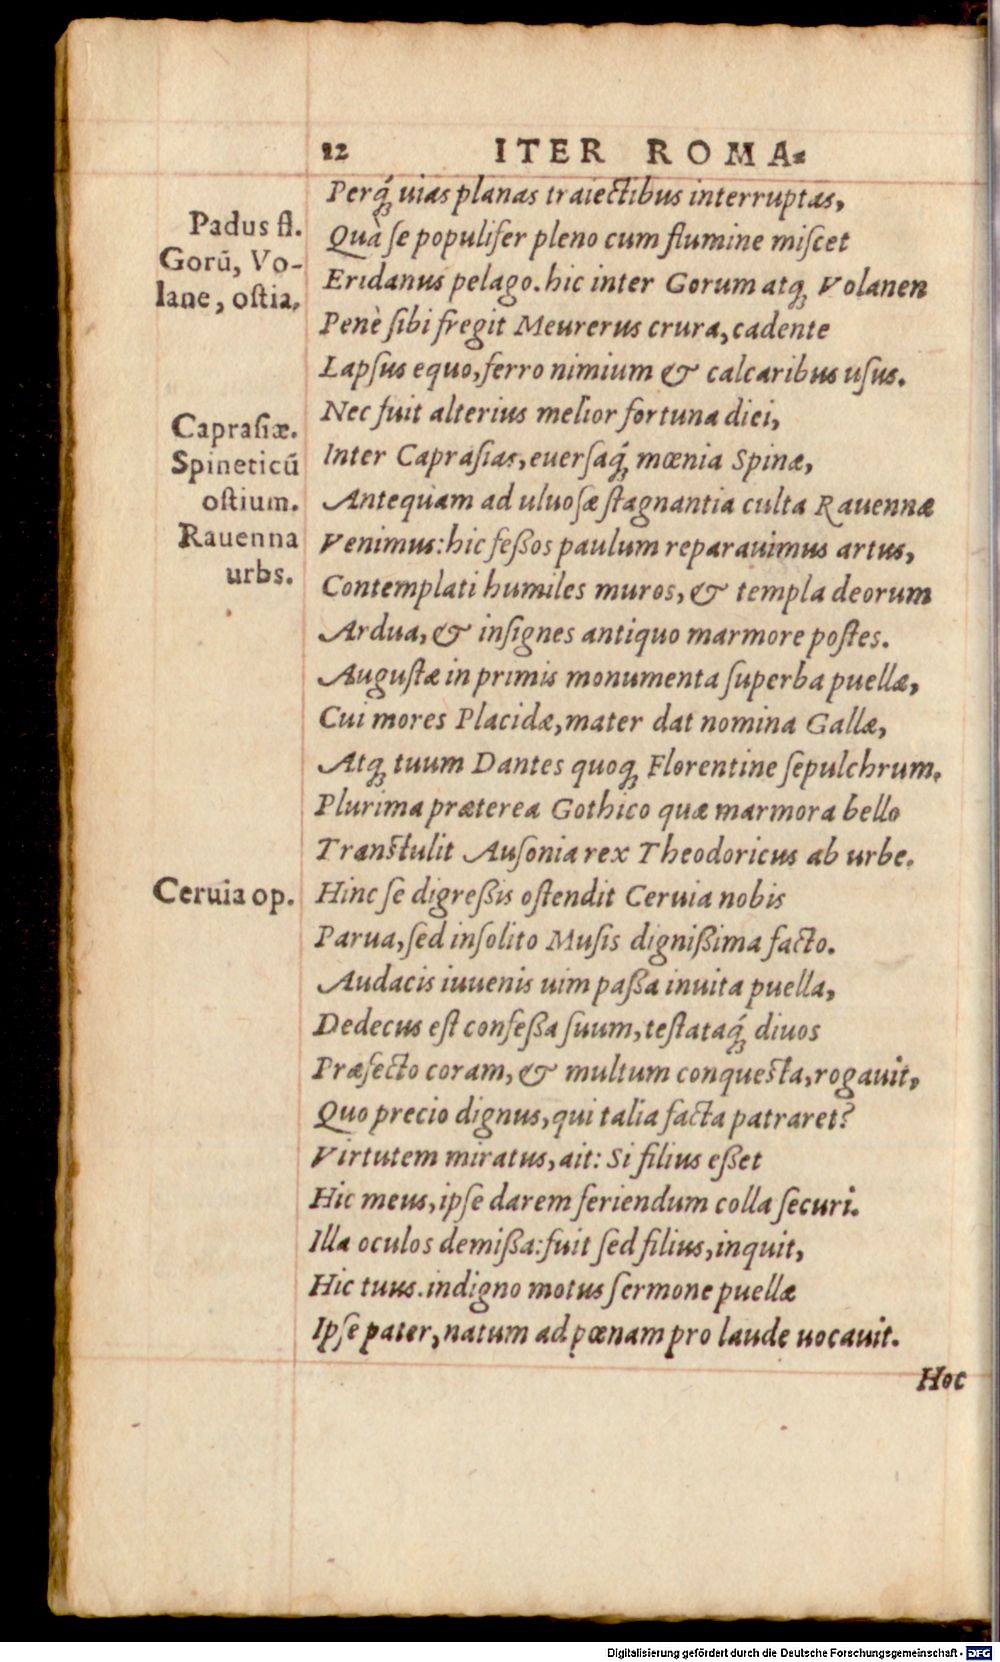 12 ITER ROMA-
Perq́; uias planas traiectibus interruptas,
Padus fl.
Quà ſe populifer pleno cum flumine miſcet
Gorū, Vo-
Eridanus pelago. hic inter Gorum atq; Volanen
lane, oſtia.
Penè ſibi fregit Meurerus crura, cadente
Lapſus equo, ferro nimium & calcaribus uſus.
Nec fuit alterius melior fortuna diei,
Capraſiæ.
Inter Capraſias, euerſaq́; mœnia Spinæ,
Spineticū
oſtium.
Antequam ad uluoſæ ſtagnantia culta Rauennæ
Rauenna
Venimus: hic feßos paulum reparauimus artus,
urbs.
Contemplati humiles muros, & templa deorum
Ardua, & inſignes antiquo marmore poſtes.
Auguſtæ in primis monumenta ſuperba puellæ,
Cui mores Placidæ, mater dat nomina Gallæ,
Atq; tuum Dantes quoq; Florentine ſepulchrum.
Plurima præterea Gothico quæ marmora bello
Tranſtulit Auſonia rex Theodoricus ab urbe.
Ceruia op.
Hinc ſe digreßis oſtendit Ceruia nobis
Parua, ſed inſolito Muſis dignißima facto.
Audacis iuuenis uim paßa inuita puella,
Dedecus eſt confeßa ſuum, teſtataq́; diuos
Præfecto coram, & multum conqueſta, rogauit,
Quo precio dignus, qui talia facta patraret?
Virtutem miratus, ait: Si filius eßet
Hic meus, ipſe darem feriendum colla ſecuri.
Illa oculos demißa: fuit ſed filius, inquit,
Hic tuus. indigno motus ſermone puellæ
Ipſe pater, natum ad pœnam pro laude uocauit.
Hoc
Digitalisierung gefördert durch die Deutsche Forschungsgemeinschaft - DFG